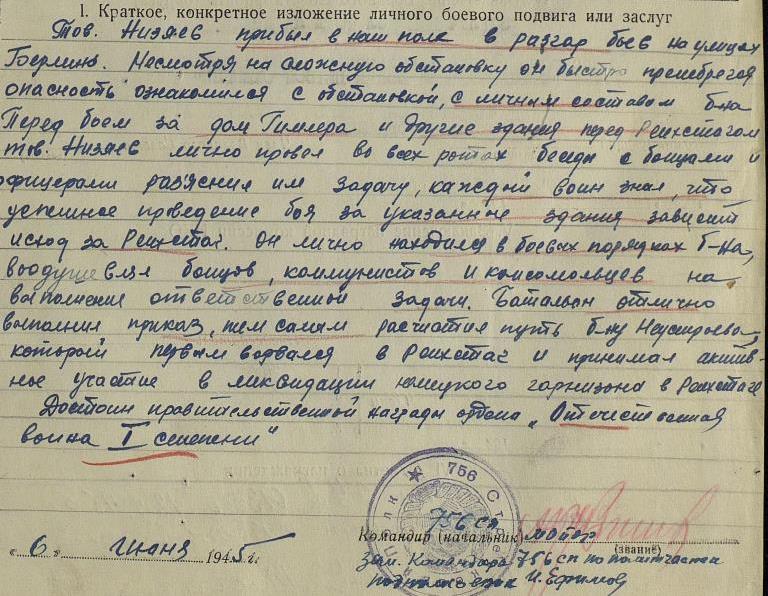 1. Краткое, конкретное изложение личного боевого подвига или заслуг
Тов. Низяев прибыл в наш полк в разгар боев на улицах
Берлина. Несмотря на сложную обстановку он быстро пренебрегая
опасность ознакомился с обстановкой, с личным составом б-на
Перед боем за дом Гимлера и другие здания перед Рейхстагом
тов. Низяев лично провел во всех ротах беседы с бойцами и
офицерами раз'яснил им задачу, каждый воин знал, что
успешное проведение боя за указанные здания зависит
исход за Рейхстаг. Он лично находился в боевых порядках б-на,
воодушевляя бойцов, коммунистов и комсомольцев на
выполнение ответственной задачи. Батальон отлично
выполнил приказ, тем самым расчистил путь б-ну Неустроева,
который первым ворвался в Рейхстаг и принимал актив-
ное участие в ликвидации немецкого гарнизона в Рейхстаге
Достоин правительственной награды ордена „Отечественная
война I степени"
756
756 сп
Командир (начальник) майор
(звание)
"6" июня 1945 г.
Зам. Командира 756 сп по политчасти
подполковник И. Ефимов